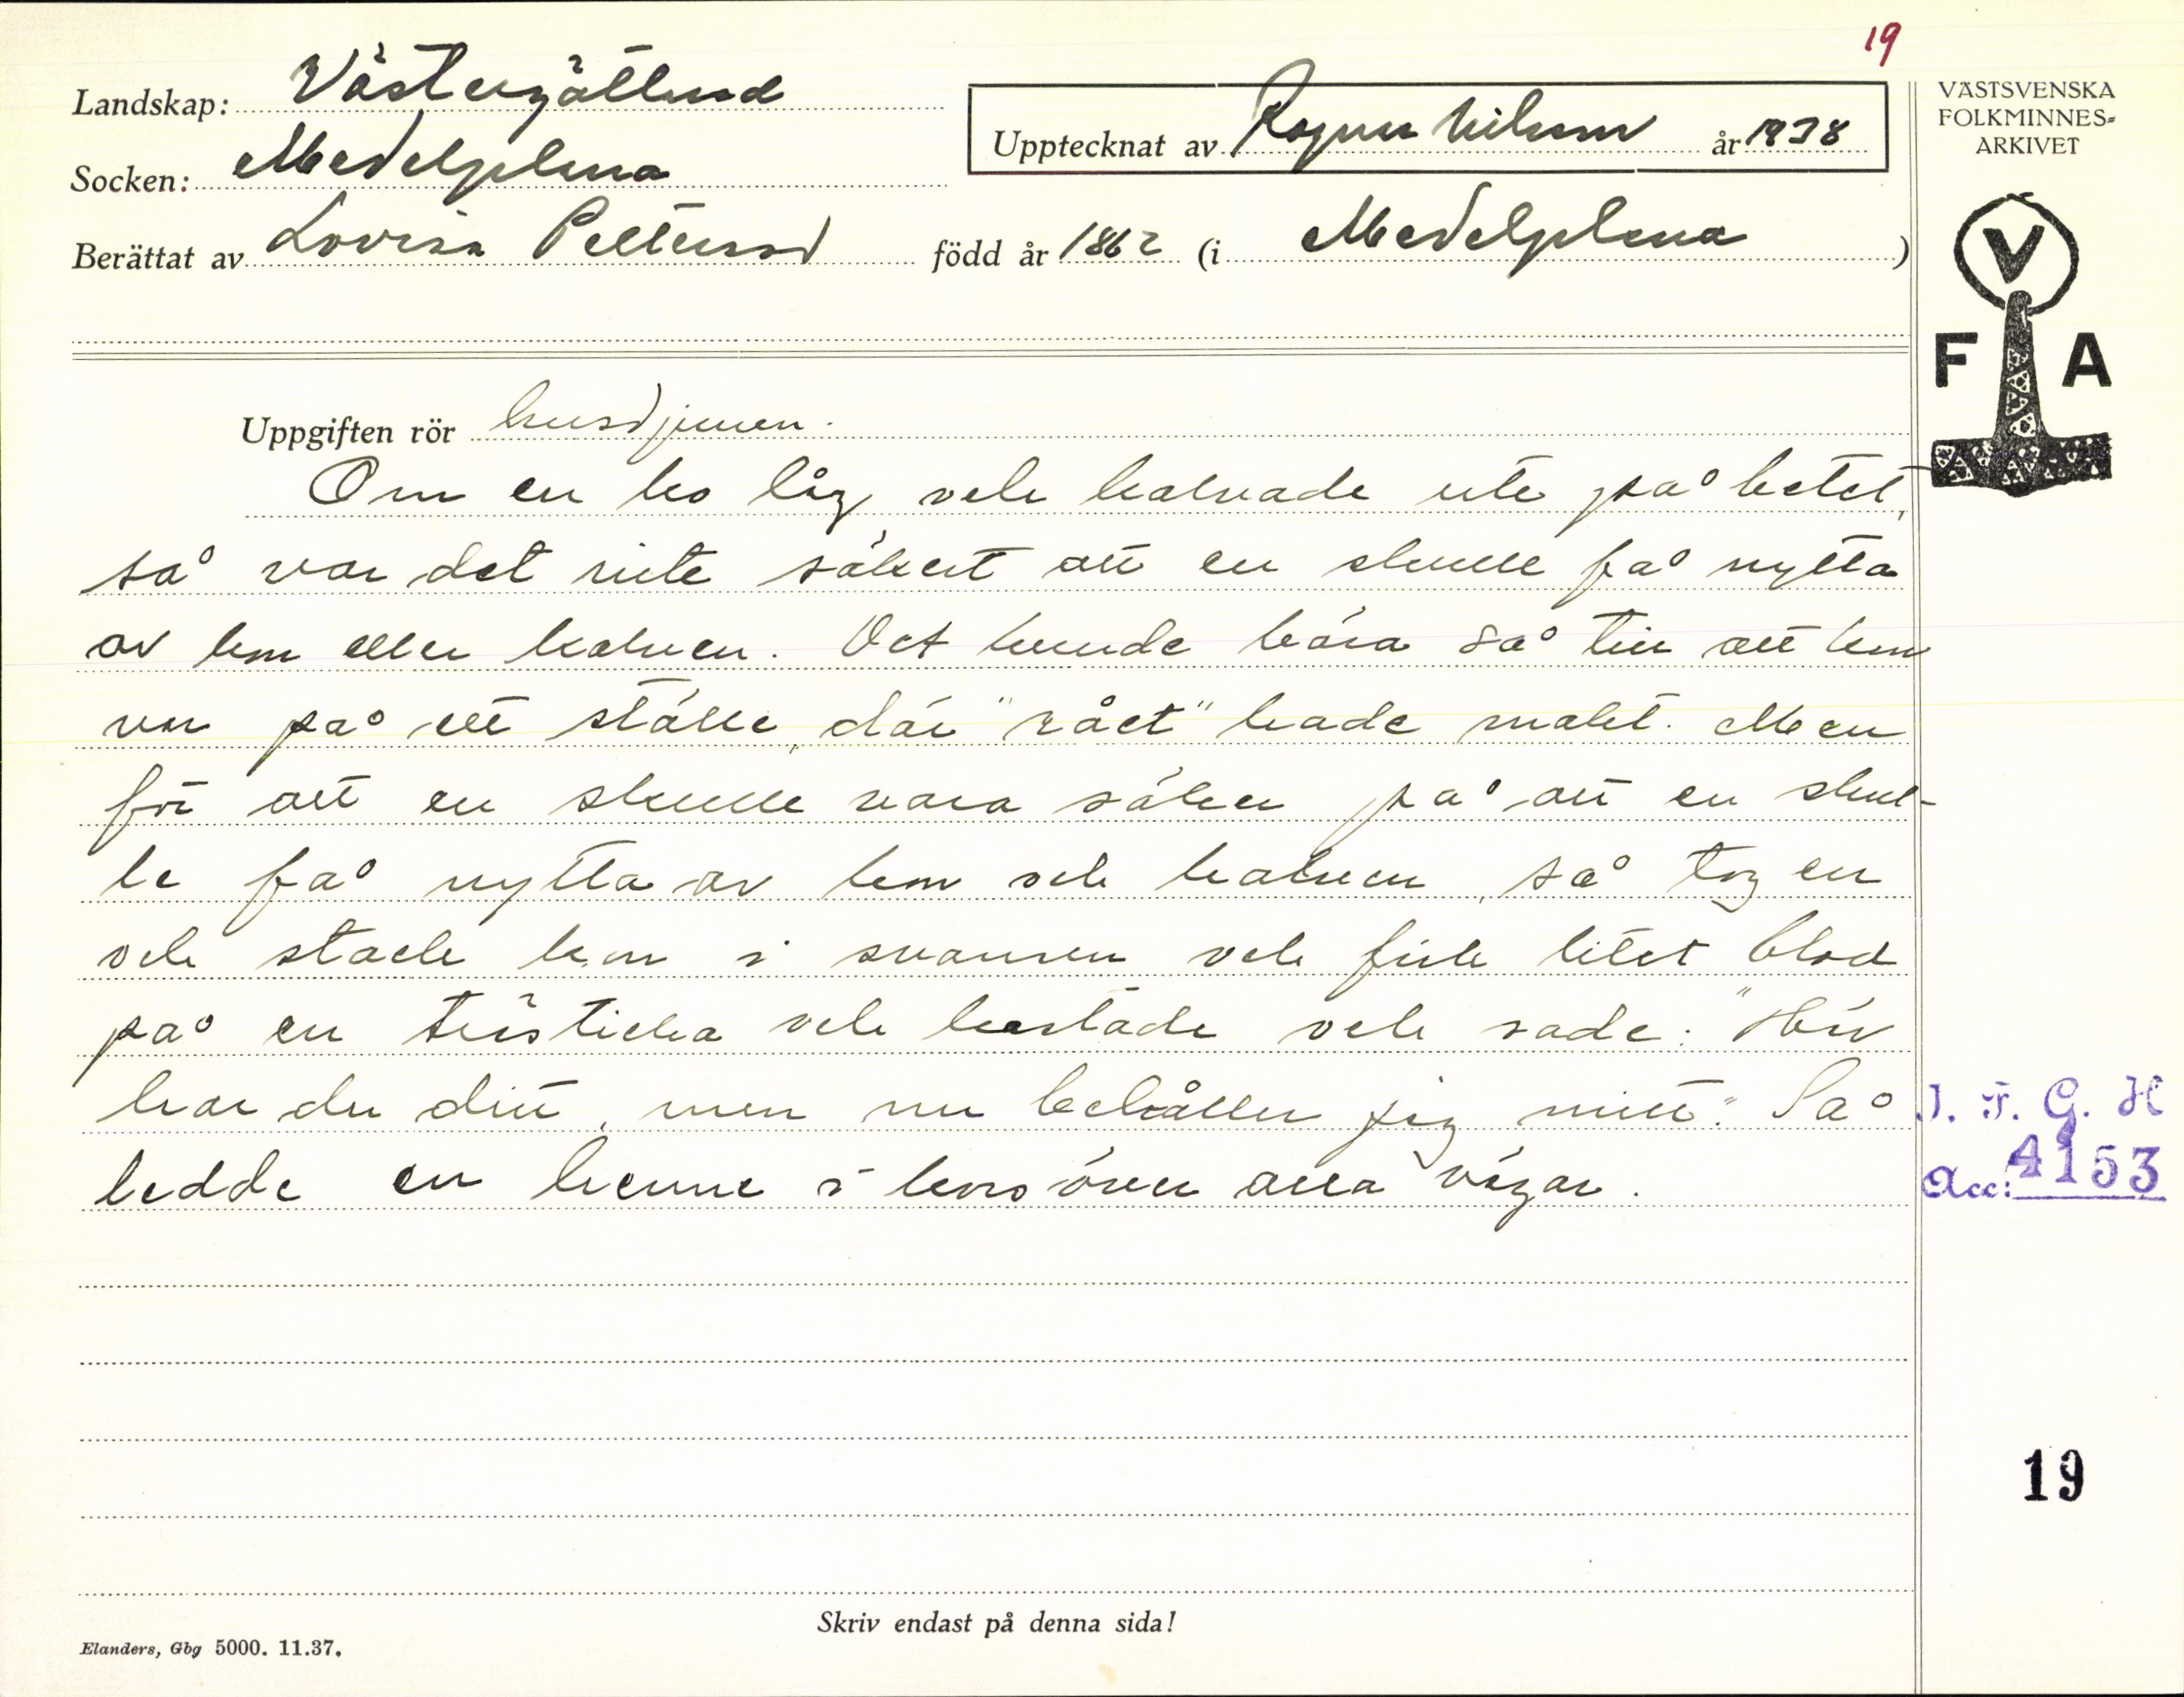 19
Landskap: Västergötland
VÄSTSVENSKA
FOLKMINNES-
ARKIVET
Upptecknat av Ragnar Nilsson år 1938
Socken: Medelplana
Berättat av Lovisa Pettersson född år 1862 (i Medelplana)
V
F A
Uppgiften rör husdjuren.
Om en ko låg och kalvade ute på betet,
så var det inte säkert att en skulle få nytta
av kon eller kalven. Det kunde bära så till att kon
var på ett ställe, där "rået" hade makt. Men
för att en skulle vara säker på att en skul-
le få nytta av kon och kalven, så tog en
och stack kon i svansen och fick litet blod
på en trästicka och kastade och sade: "Här
har du ditt, men nu behåller jag mitt." Så
ledde en henne i hornsören alla vägar.
I. F. G. H
Acc: 4153
19
Skriv endast på denna sida!
Elanders, Gbg 5000. 11.37.